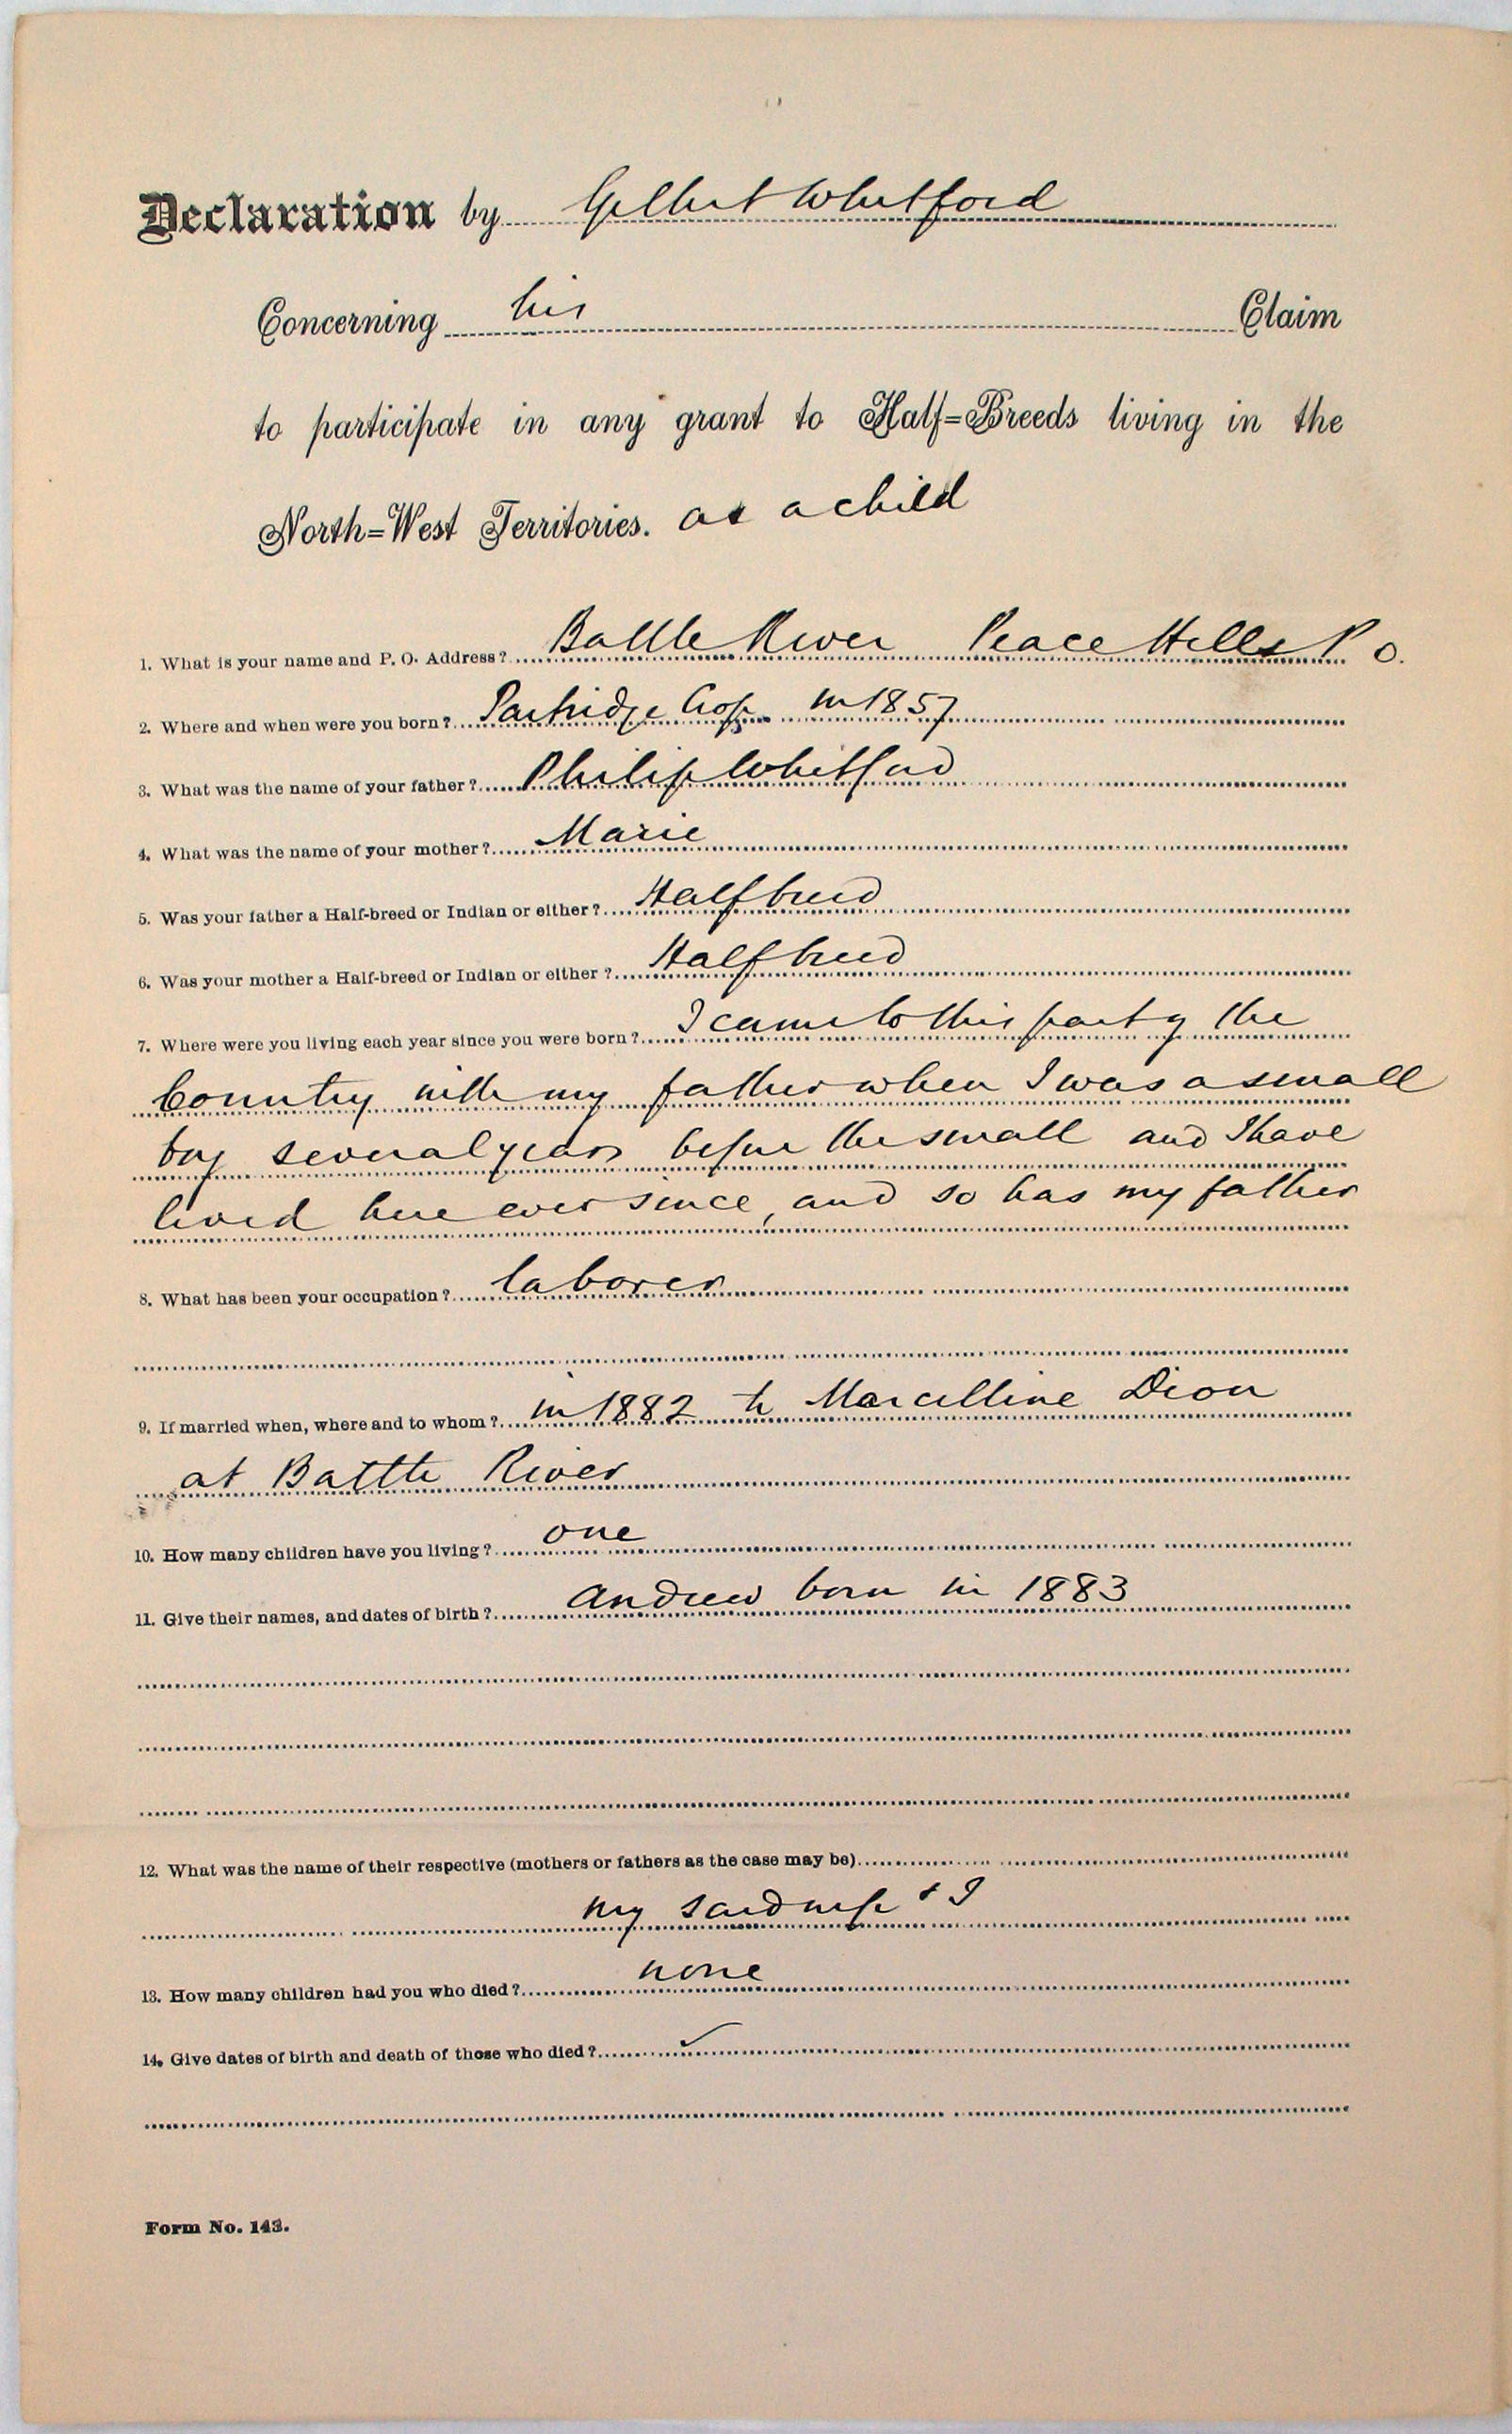 Declaration by Gilbert Whitford
Concerning his Claim
to participate in any grant to Half=Breeds living in the
North=West Territories. as a child
1. What is your name and P. O. Address? Battle River Peace Hills P. O.
2. Where and when were you born? Partridge Crop in 1857
3. What was the name of your father? Philip Whitford
4. What was the name of your mother? Marie
5. Was your father a Half-breed or Indian or either? Halfbreed
6. Was your mother a Half-breed or Indian or either? Halfbreed
7. Where were you living each year since you were born? I came to this part of the
Country with my father when I was a small
boy several years before the small and I have
lived here ever since, and so has my father
8. What has been your occupation? laborer
9. If married when, where and to whom? in 1882 to Marcelline Dion
at Battle River
10. How many children have you living? one
11. Give their names, and dates of birth? Andrew born in 1883
12. What was the name of their respective (mothers or fathers as the case may be)
my said wife & I
13. How many children had you who died? none
14. Give dates of birth and death of those who died?
Form No. 143.